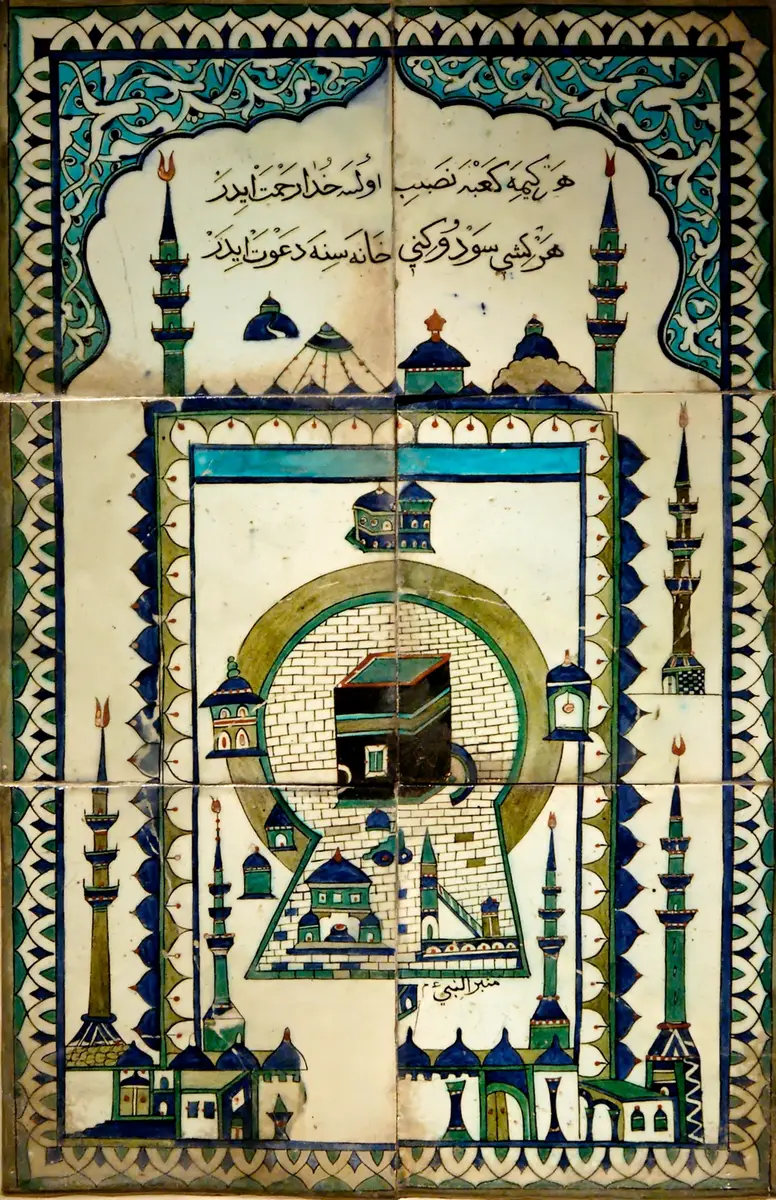 هَرْ كِيمَه كَعْبَه نَصِيب اولسَه خُدا رَحْمَتْ ايدَرْ
هَرْ كشي سَوْدُوكِني خَانَه سِنَه دَعْوَتْ ايدَرْ
منبر النبي ءم